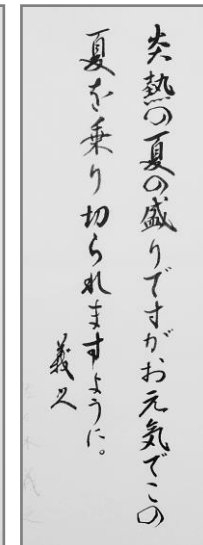 炎熱の夏の盛りですがお元気でこの
夏を乗り切られますように。
義久